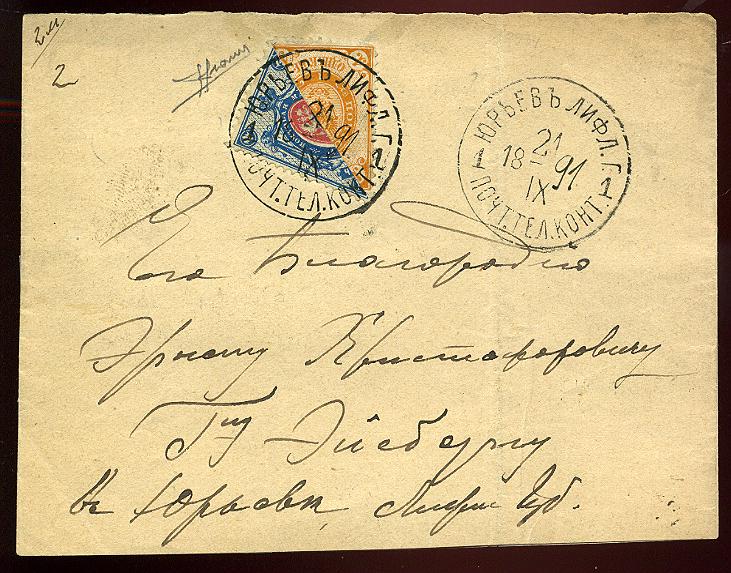 2
ЮРЬЕВЪ ЛИФЛ. Г.
1 21 1
18 91
IX
ПОЧТ.ТЕЛ.КОНТ.
ЮРЬЕВЪ ЛИФЛ. Г.
1 21 1
18 91
IX
ПОЧТ.ТЕЛ.КОНТ.
Его Благородию
Эрнсту Христофоровичу
Гну Эйсбергу
въ Юрьевѣ, Лифл. Губ.